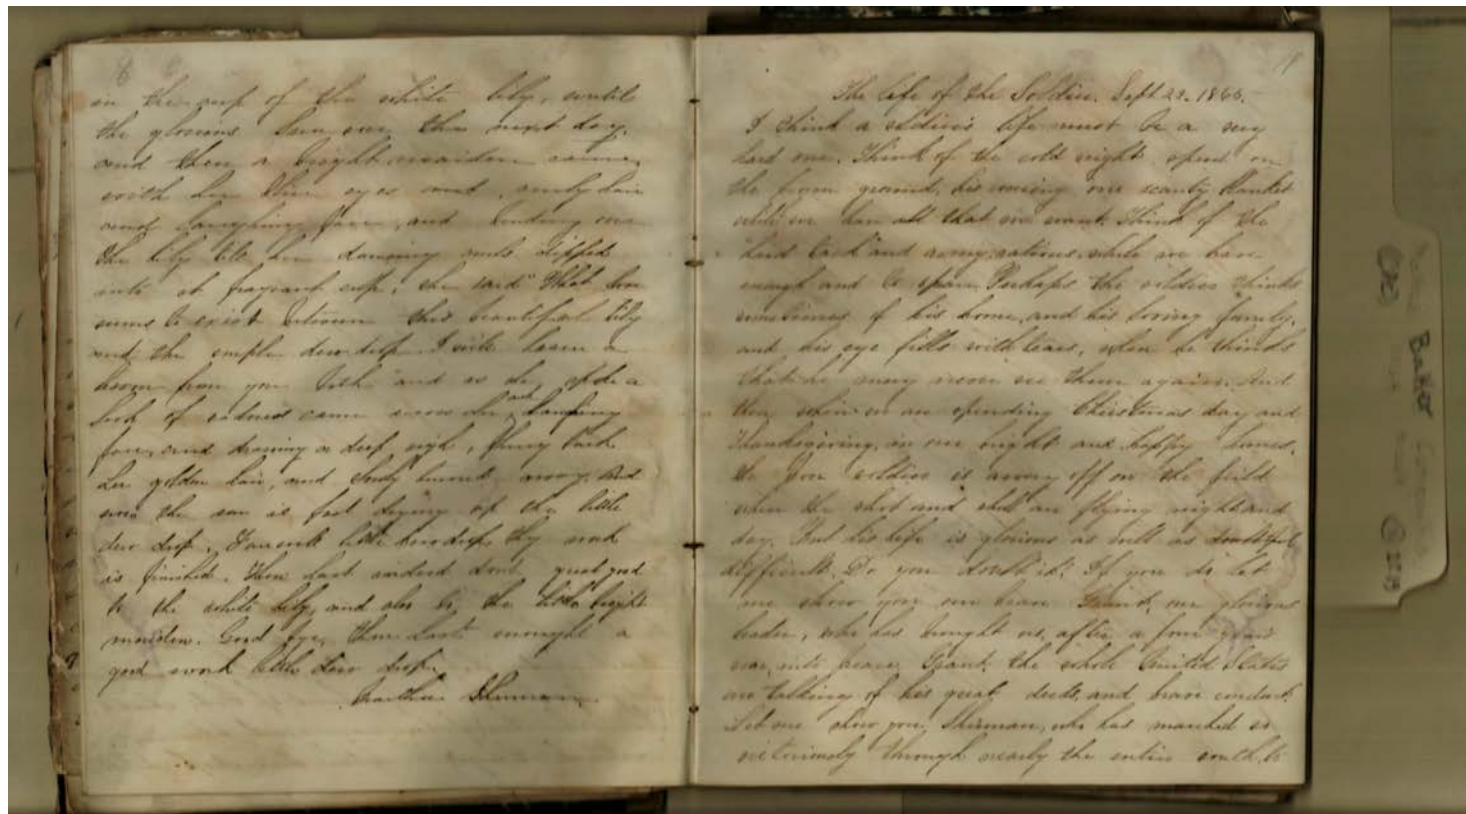 8
in the cup of the white lily, until
the glorious Sun rose the next day.
and then a bright maiden came,
with her blue eyes and curly hair
and laughing face, and bending over
the lily till her dancing curls dipped
into it fragrant cup, she said "What love
seems to exist between this beautiful lily
and the simple dew drop I will learn a
lesson from you both" and as she spoke a
look of sadness came across her laughing
face, and drawing a deep sigh, flung back
her golden hair, and slowly turned away. And
now the sun is fast drying up the little
dew drop. Farewell little dewdrop, thy work
is finished. Thou hast indeed done great good
to the white lily, and also to the little bright
maiden. Good bye, thou hast wrought a
good work little dew drop.
The life of the Soldier. Sept 22. 1865.
I think a soldier's life must be a very
hard one. Think of the cold night spent on
the frozen ground, his covering one scanty blanket
while we have all that we want. Think of the
"hard tack" and army rations, while we have
enough and to spare. Perhaps the soldier thinks
sometimes of his home, and his loving family,
and his eye fills with tears, when he thinks
that he may never see them again. And
then when we are spending Christmas day and
Thanksgiving, in our bright and happy homes,
the poor soldier is away off on the field
where the shot and shell are flying night and
day. But his life is glorious as well as
difficult. Do you doubt it? If you do let
me show you our brave Grant, our glorious
leader, who has brought us, after a four years
war, into peace. Grant, the whole United States
are talking of his great deeds, and brave conduct.
Let me show you Sherman, who has marched so
victoriously through nearly the entire south, to
Baker